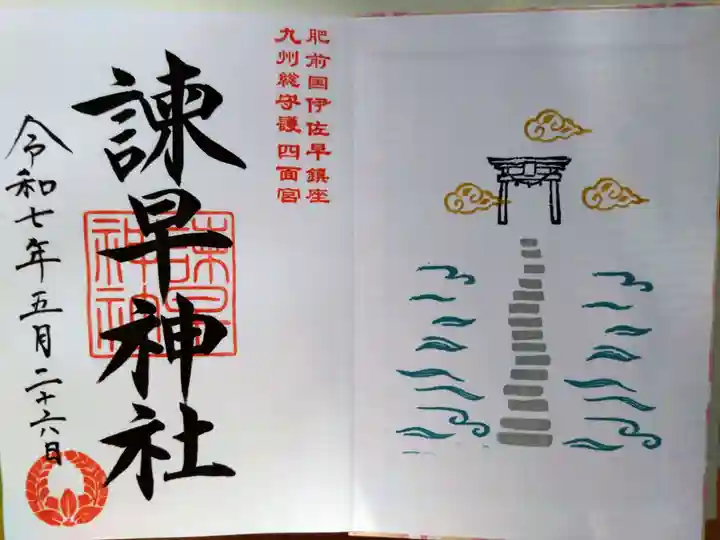 肥前国伊佐早鎮座
九州総守護四面宮
諫早神社
令和七年五月二十六日
諫早神社